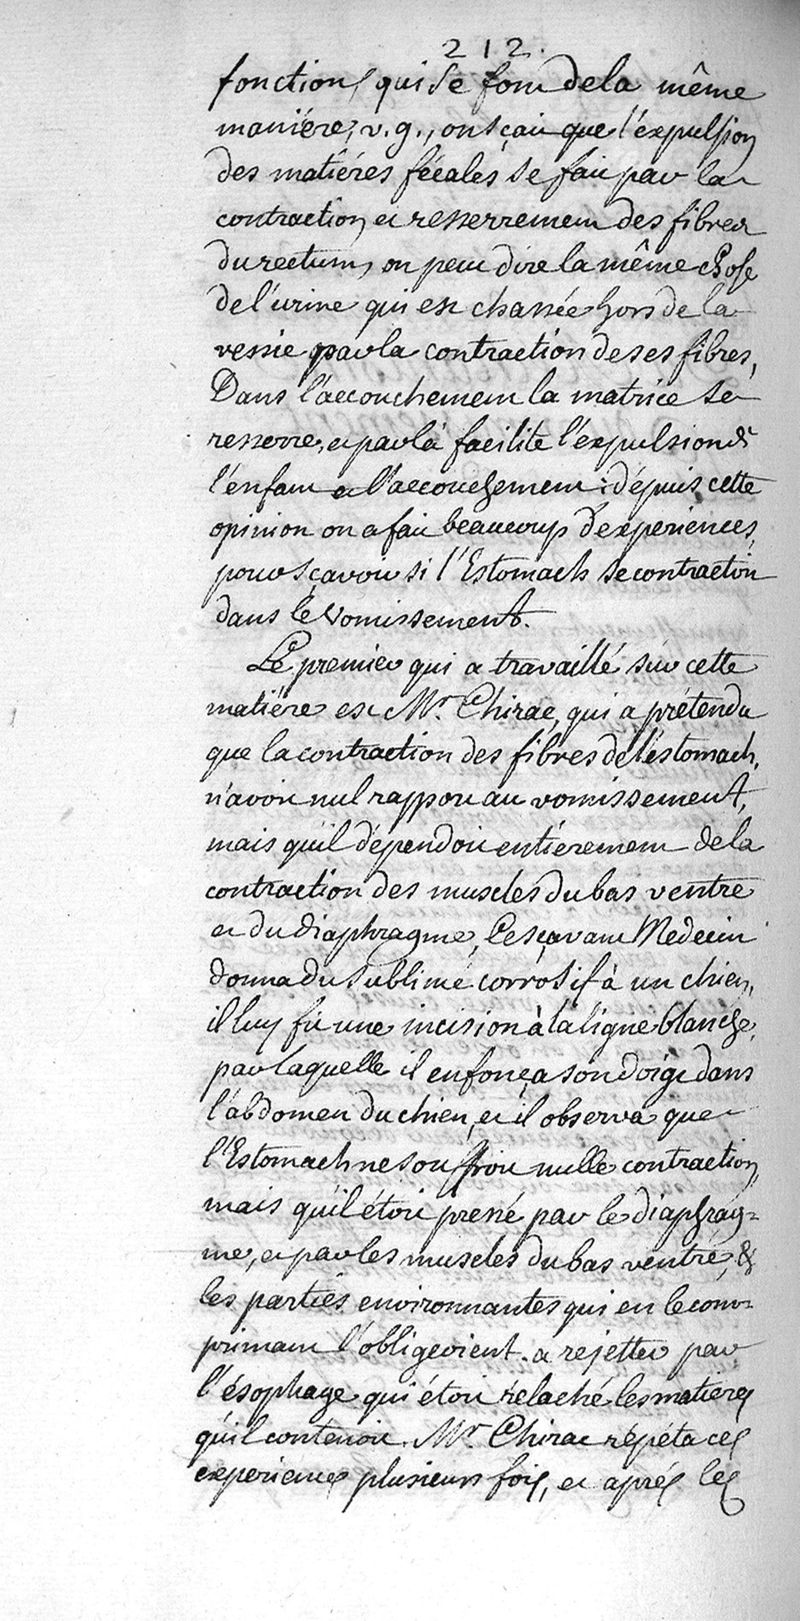 212.
fonctions qui se font de la même
maniére, v.g., on sçait que l'expulsion
des matiéres fécales se fait par la
contraction et resserrement des fibres
du rectum, on peut dire la même chose
de l'urine qui est chassée hors de la
vessie par la contraction de ses fibres,
Dans l'accouchement la matrice se
resserre, et par là facilite l'expulsion de
l'enfant et l'accouchement : dépuis cette
opinion on a fait beaucoup d'experiences,
pour sçavoir si l'Estomach se contractoit
dans le vomissement.
Le premier qui a travaillé sur cette
matiére est Mr. Chirac, qui a prétendu
que la contraction des fibres de l'éstomach,
n'avoit nul rapport au vomissement,
mais qu'il dépendoit entiérement de la
contraction des muscles du bas ventre
et du diaphragme, Ce sçavant Medecin
donna du sublimé corrosif à un chien,
il luy fit une incision à la ligne blanche,
par laquelle il enfonça son doigt dans
l'abdomen du chien, et il observa que
l'Estomach ne souffroit nulle contraction,
mais qu'il étoit pressé par le diaphrag=
me, et par les muscles du bas ventre, &
les parties environnantes qui en le com=
primant l'obligeoient a rejetter par
l'ésophage qui étoit rélaché les matieres
qu'il contenoit. Mr. Chirac répéta ces
experiences plusieurs fois, et aprés les